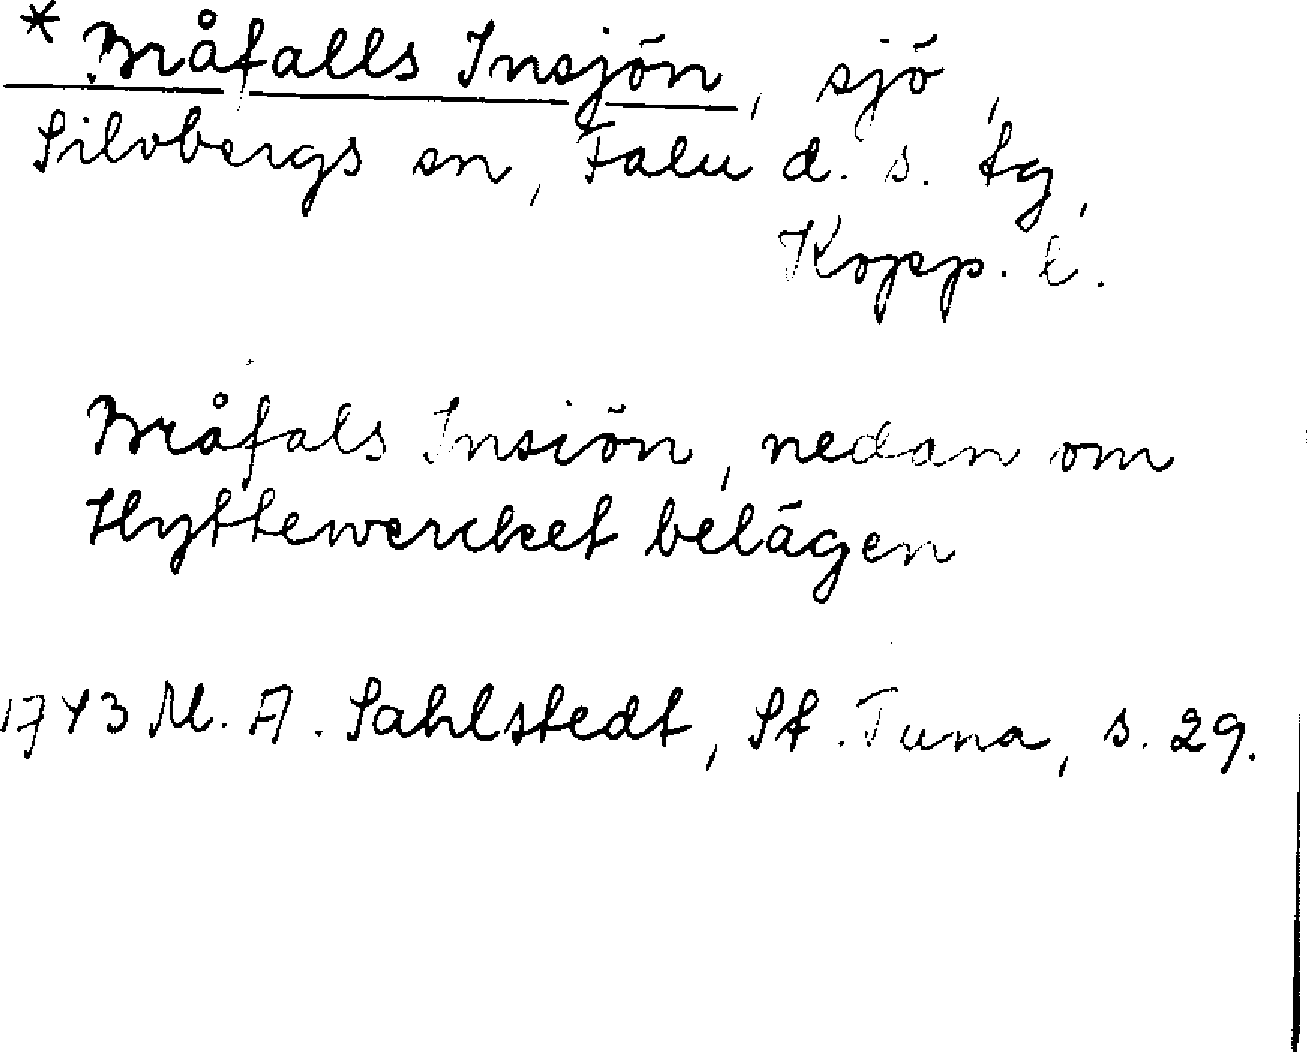 * Bråfalls Insjön, sjö,
Silvbergs sn, Falu d. s. tg,
Kopp. l.
Bråfals Insiön, nedan om
Hyttewercket belägen
1743 M. A. Sahlstedt, St. Tuna, s. 29.